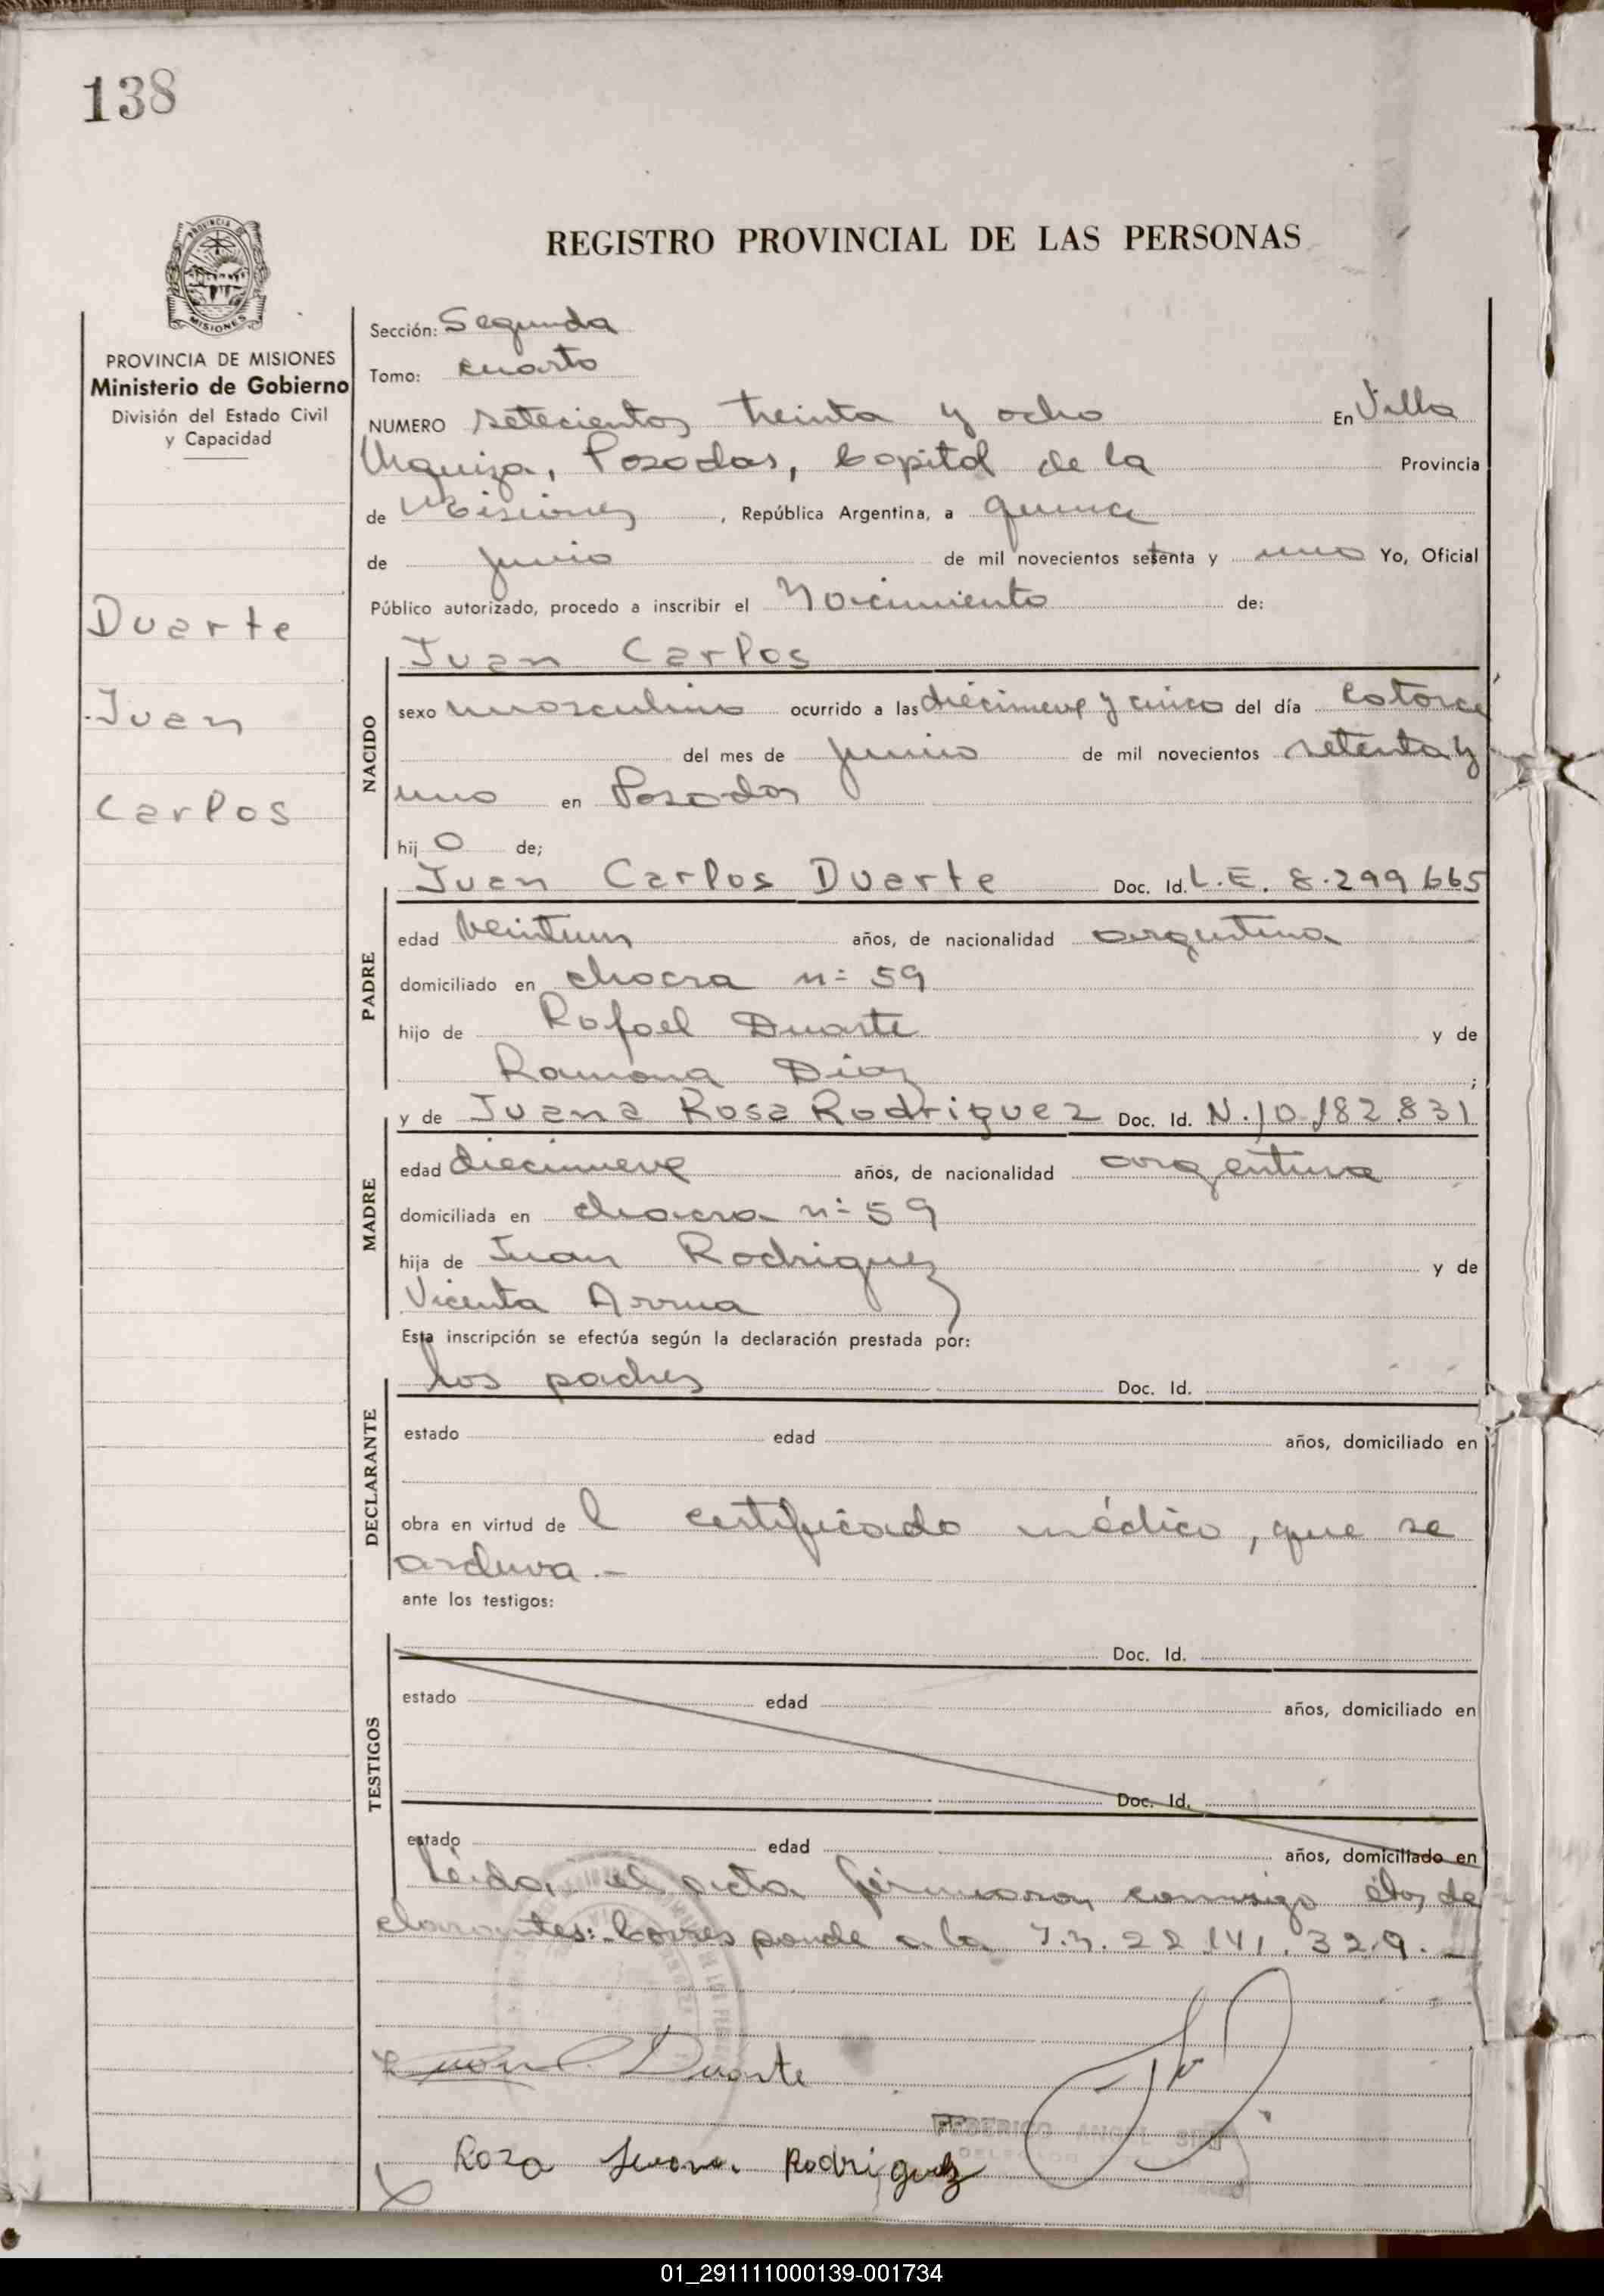 138
PROVINCIA DE
MISIONES
REGISTRO PROVINCIAL DE LAS PERSONAS
PROVINCIA DE MISIONES
Ministerio de Gobierno
División del Estado Civil
y Capacidad
Duarte
Juan
Carlos
Sección: Segunda
Tomo: cuarto
NUMERO setecientos treinta y ocho En Villa
Urquiza, Posadas, Capital de la Provincia
de Misiones, República Argentina, a quince
de junio de mil novecientos setenta y uno Yo, Oficial
Público autorizado, procedo a inscribir el Nacimiento de:
Juan Carlos
NACIDO
sexo masculino ocurrido a las diecinueve y cinco del día catorce
del mes de junio de mil novecientos setenta y
uno en Posadas
hij o de;
Juan Carlos Duarte Doc. Id. L.E. 8.299.665
PADRE
edad veintiun años, de nacionalidad argentina
domiciliado en chacra nº 59
hijo de Rafael Duarte y de
Ramona Diaz ;
y de Juana Rosa Rodriguez Doc. Id. N.10.182.831
MADRE
edad diecinueve años, de nacionalidad argentina
domiciliada en chacra nº 59
hija de Juan Rodriguez y de
Vicenta Arrua
Esta inscripción se efectúa según la declaración prestada por:
los padres Doc. Id.
DECLARANTE
estado edad años, domiciliado en
obra en virtud de l certificado médico, que se
archiva.-
ante los testigos:
Doc. Id.
TESTIGOS
estado edad años, domiciliado en
Doc. Id.
estado edad años, domiciliado en
Leida el acta firmaron conmigo los de
clarantes:. Corresponde a la 22.141.329.-
Juan C. Duarte
FEDERICO
Roza Juana Rodriguez
01_291111000139-001734